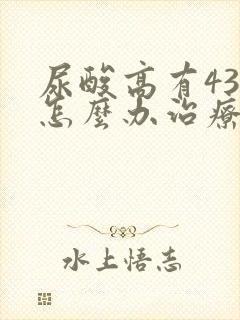 尿酸高有43
怎麼办治療
水上悟志